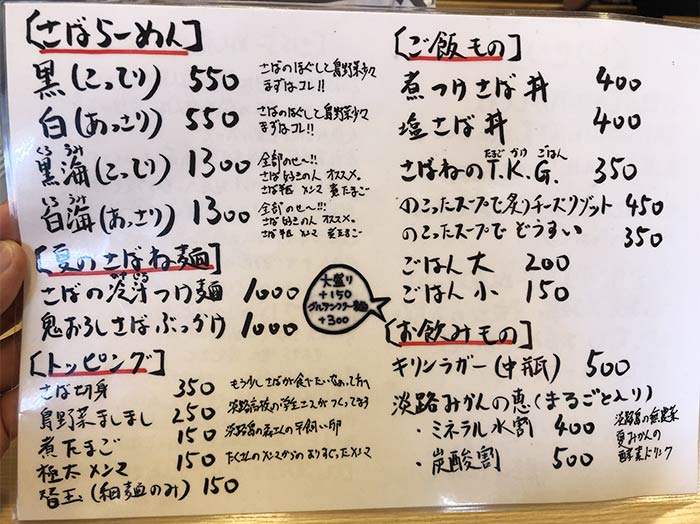 【さばらーめん】
黒(こってり) 550 さばのほぐしと島野菜少々 まずはコレ!!
白(あっさり) 550 さばのほぐしと島野菜少々 まずはコレ!!
くろ うみ
黒海(こってり) 1300 全部のせ~!! さば好きの人 オススメ。 さば半匹 メンマ 煮たまご
しろ うみ
白海(あっさり) 1300 全部のせ~!! さば好きの人 オススメ。 さば半匹 メンマ 煮たまご
【夏のさばね麺】
さばの冷汁つけ麺 1000
鬼おろしさばぶっかけ 1000
大盛り
+150
グルテンフリー麺
+300
【トッピング】
さば切身 350 もう少しさばが食べたいなぁって方へ
島野菜ましまし 250 淡路高校の学生さんがつくってます
煮たまご 150 淡路島の 平飼い卵
極太メンマ 150 たくさんのメンマからのよりすぐったメンマ
替玉(細麺のみ) 150
【ご飯もの】
煮つけさば丼 400
塩さば丼 400
たまご かけ ごはん
さばねのT.K.G. 350
のこったスープで炙りチーズリゾット 450
のこったスープでどうすい 350
ごはん 大 200
ごはん 小 150
【お飲みもの】
キリンラガー(中瓶) 500
淡路みかんの恵(まるごと入り)
・ミネラル水割 400
・炭酸割 500
淡路島の無農薬
夏みかんの
酵素ドリンク